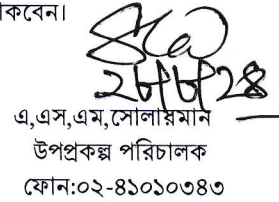 কবেন।
২৮/৮/২৪
এ,এস,এম,সোলায়মান
উপপ্রকল্প পরিচালক
ফোন:০২-৪১০১০৩৪৩